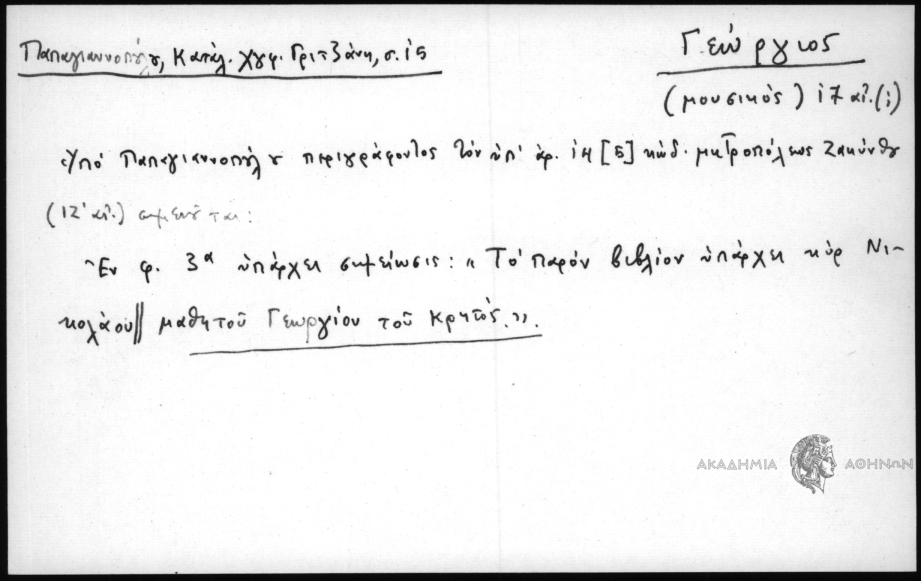 Παπαγιαννοπούλου, Κατάλ. χγφ. Γριτζάνη, σ. 15
Γεώργιος
(μουσικός) 17 αἰ. (;)
Ὑπό Παπαγιαννοπούλου περιγράφοντος τόν ὑπ' ἀρ. 14 [5] κώδ. μητροπόλεως Ζακύνθου
(ΙΖ' αἰ.) σημειοῦται:
Ἐν φ. 3α ὑπάρχει σημείωσις: « Τό παρόν βιβλίον ὑπάρχει κύρ Νι-
κολάου|| μαθητοῦ Γεωργίου τοῦ Κρητός.».
ΑΚΑΔΗΜΙΑ ΑΘΗΝΩΝ